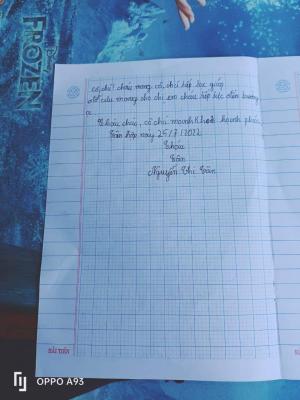 FROZEN
cô chú! cháu mong cô chú tiếp tục giúp
đỡ cưu mang cho chị em cháu tiếp bước đến trường
ạ
Cháu chúc, cô chú mạnh khoẻ hạnh phúc
Tân hợp ngày 25/7/2022
Cháu
Nguyễn Thị
HẢI TIẾN
OPPO A93